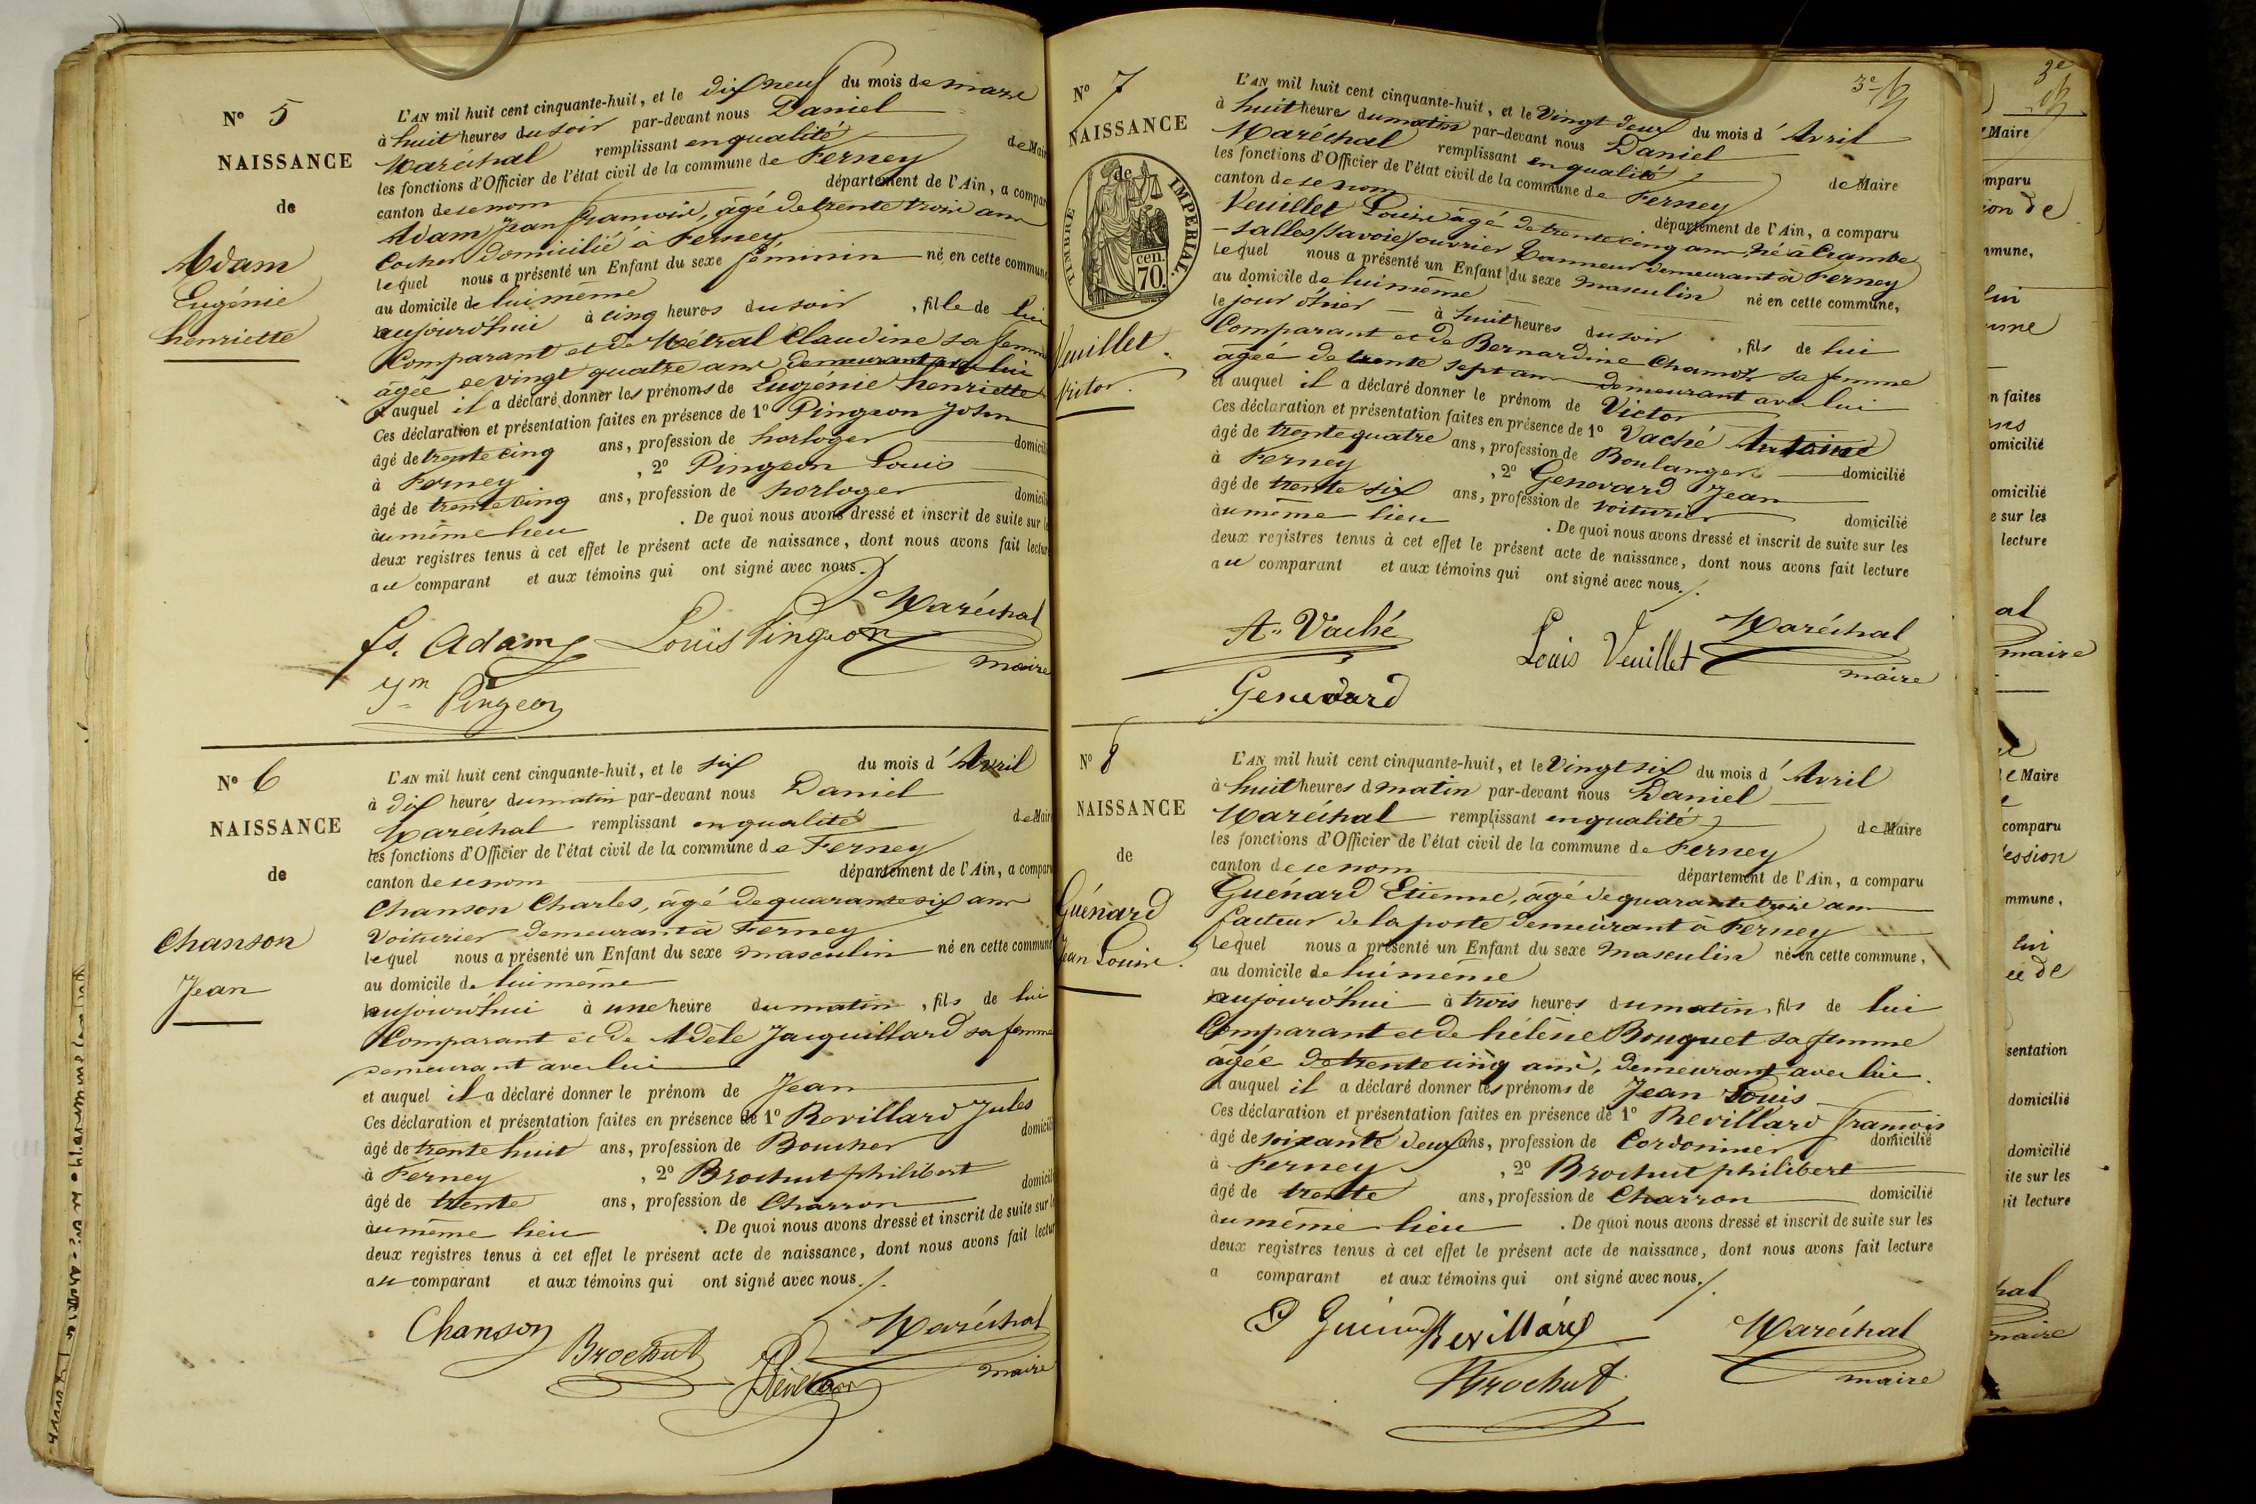 N° 5
NAISSANCE
de
Adam
Eugénie
henriette
L'AN mil huit cent cinquante-huit, et le dix neuf du mois de mars
à huit heures du soir par-devant nous Daniel
Maréchal remplissant en qualité de Maire
les fonctions d'Officier de l'état civil de la commune de Ferney
canton de ce nom département de l'Ain, a comparu
Adam Jean françois, âgé de trente trois ans
Cocher domicilié à Ferney
lequel nous a présenté un Enfant du sexe féminin né en cette commune
au domicile de lui même
aujourd'hui à cinq heures du soir, fille de lui
Comparant et de Métral Claudine sa femme
âgée de vingt quatre ans demeurant avec lui
et auquel il a déclaré donner les prénoms de Eugénie henriette
Ces déclaration et présentation faites en présence de 1° Pingeon John
âgé de trente cinq ans, profession de horloger domicilié
à Ferney, 2° Pingeon Louis
âgé de trente cinq ans, profession de horloger domicilié
au même lieu. De quoi nous avons dressé et inscrit de suite sur les
deux registres tenus à cet effet le présent acte de naissance, dont nous avons fait lecture
au comparant et aux témoins qui ont signé avec nous.
fs. Adam Louis Pingeon Maréchal
maire
Jn Pingeon
N° 6
NAISSANCE
de
Chanson
Jean
L'AN mil huit cent cinquante-huit, et le six du mois d'Avril
à dix heures du matin par-devant nous Daniel
Maréchal remplissant en qualité de Maire
les fonctions d'Officier de l'état civil de la commune de Ferney
canton de ce nom département de l'Ain, a comparu
Chanson Charles, âgé de quarante six ans
Voiturier demeurant à Ferney
lequel nous a présenté un Enfant du sexe masculin né en cette commune
au domicile de lui même
aujourd'hui à une heure du matin, fils de lui
Comparant et de Adèle Jacquillard sa femme
demeurant avec lui
et auquel il a déclaré donner le prénom de Jean
Ces déclaration et présentation faites en présence de 1° Revillard Jules
âgé de trente huit ans, profession de Boucher domicilié
à Ferney, 2° Brochut philibert
âgé de trente ans, profession de Charron domicilié
au même lieu. De quoi nous avons dressé et inscrit de suite sur les
deux registres tenus à cet effet le présent acte de naissance, dont nous avons fait lecture
au comparant et aux témoins qui ont signé avec nous.
Chanson Brochut Revillard Maréchal
maire
3e
N° 7
NAISSANCE
de
TIMBRE IMPERIAL.
70 cen.
Veuillet
Victor.
L'AN mil huit cent cinquante-huit, et le Vingt deux du mois d'Avril
à huit heures du matin par-devant nous Daniel
Maréchal remplissant en qualité de Maire
les fonctions d'Officier de l'état civil de la commune de Ferney
canton de ce nom département de l'Ain, a comparu
Veuillet Louis âgé de trente cinq ans, né à Chambe
-salles (savoie) ouvrier tanneur demeurant à Ferney
lequel nous a présenté un Enfant du sexe masculin né en cette commune,
au domicile de lui même
le jour d'hier à huit heures du soir, fils de lui
Comparant et de Bernardine Chamot sa femme
âgée de trente sept ans demeurant avec lui
et auquel il a déclaré donner le prénom de Victor
Ces déclaration et présentation faites en présence de 1° Vaché Antoine
âgé de trente quatre ans, profession de Boulanger domicilié
à Ferney, 2° Genevard Jean
âgé de trente six ans, profession de voiturier domicilié
au même lieu. De quoi nous avons dressé et inscrit de suite sur les
deux registres tenus à cet effet le présent acte de naissance, dont nous avons fait lecture
au comparant et aux témoins qui ont signé avec nous.
A. Vaché Louis Veuillet Maréchal
maire
Genevard
N° 8
NAISSANCE
de
Guénard
Jean Louis.
L'AN mil huit cent cinquante-huit, et le Vingt six du mois d'Avril
à huit heures d matin par-devant nous Daniel
Maréchal remplissant en qualité de Maire
les fonctions d'Officier de l'état civil de la commune de Ferney
canton de ce nom département de l'Ain, a comparu
Guénard Etienne, âgé de quarante trois ans
facteur de la poste demeurant à Ferney
lequel nous a présenté un Enfant du sexe masculin né en cette commune,
au domicile de lui même
aujourd'hui à trois heures du matin, fils de lui
Comparant et de hélène Bouquet sa femme
âgée de trente cinq ans, demeurant avec lui.
et auquel il a déclaré donner les prénoms de Jean Louis
Ces déclaration et présentation faites en présence de 1° Revillard françois
âgé de soixante deux ans, profession de Cordonnier domicilié
à Ferney, 2° Brochut philibert
âgé de trente ans, profession de Charron domicilié
au même lieu. De quoi nous avons dressé et inscrit de suite sur les
deux registres tenus à cet effet le présent acte de naissance, dont nous avons fait lecture
a comparant et aux témoins qui ont signé avec nous.
Revillard Maréchal
maire
Brochut